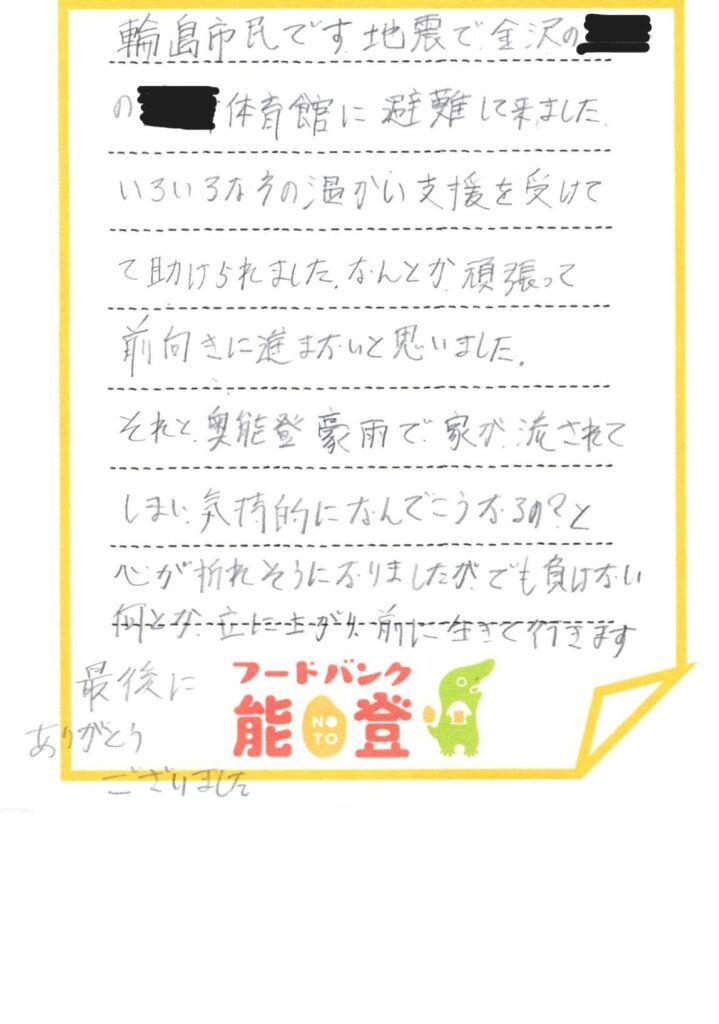 輪島市民です.地震で.金沢の
の 体育館に避難して来ました.
いろいろな方の温かい支援を受けて
て助けられました.なんとか.頑張って
前向きに進まないと思いました.
それと.奥能登豪雨で.家が.流されて
しまい.気持的になんでこうなるの?と
心が折れそうになりましたが.でも負けない
何とか.立ち上がり.前に生きて行きます
最後に
ありがとう
ござりました
フードバンク
能登
NO
TO